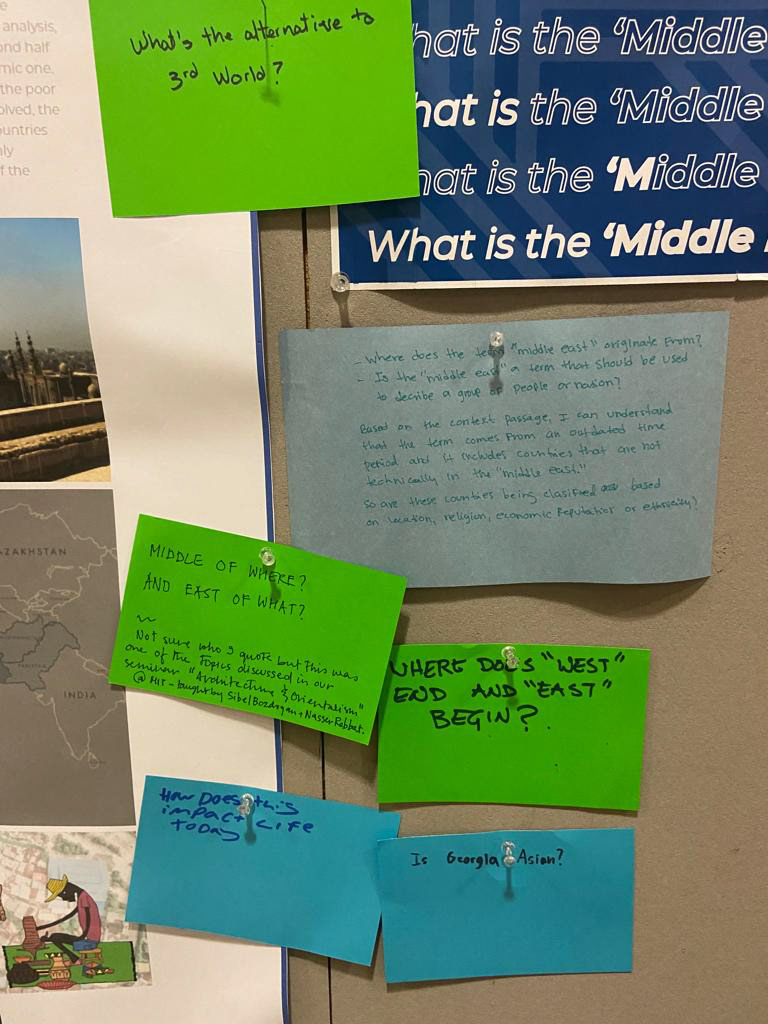 analysis,
ond half
mic one.
the poor
olved, the
ountries
f the
What's the alternative to
3rd World?
hat is the ‘Middle
hat is the ‘Middle
hat is the ‘Middle
What is the ‘Middle
- Where does the term "middle east" originate from?
- Is the "middle east" a term that should be used
to decribe a group of people or nation?
Based on the context passage, I can understand
that the term comes from an outdated time
period and it includes countries that are not
technically in the "middle east."
So are these countries being classified based
on location, religion, economic reputation or ethnicity?
MIDDLE OF WHERE?
AND EAST OF WHAT?
Not sure who I quote but this was
one of the topics discussed in our
seminar "Architecture & Orientalism"
@ MIT - taught by Sibel Bozdogan + Nasser Rabbat.
WHERE DOES "WEST"
END AND "EAST"
BEGIN?
HOW DOES this
impact LIFE
TODAY
Is Georgia Asian?
AZAKHSTAN
PAKISTAN
INDIA